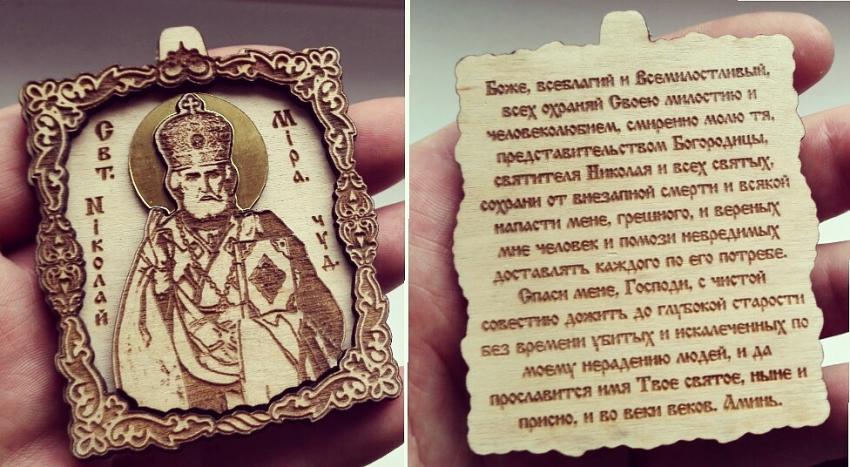 Свт.
Ніколай
Міра.
чуд.
Боже, всеблагий и Всемилостливый,
всех охраняй Своею милостию и
человеколюбием, смиренно молю тя,
представительством Богородицы,
святителя Николая и всех святых,
сохрани от внезапной смерти и всякой
напасти мене, грешного, и вереных
мне человек и помози невредимых
доставлять каждого по его потребе.
Спаси мене, Господи, с чистой
совестию дожить до глубокой старости
без времени убитых и искалеченных по
моему нерадению людей, и да
прославится имя Твое святое, ныне и
присно, и во веки веков. Аминь.